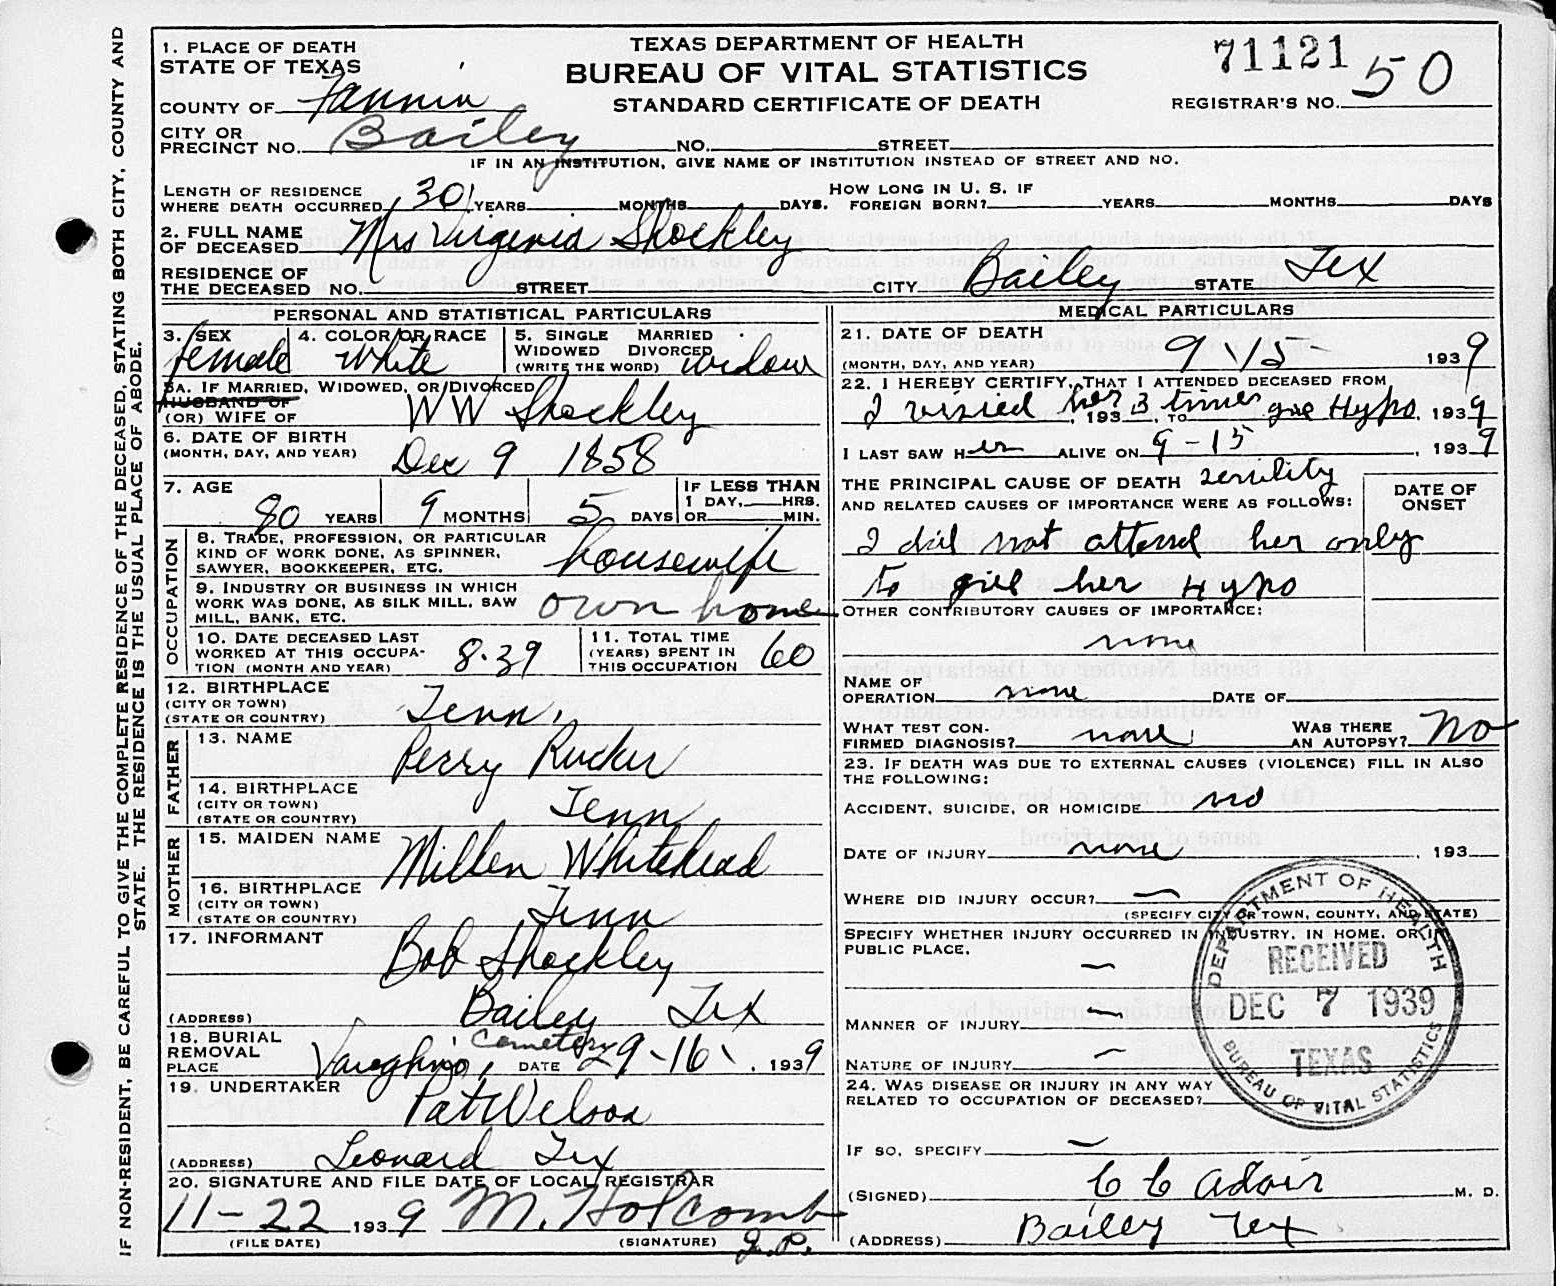 IF NON-RESIDENT, BE CAREFUL TO GIVE THE COMPLETE RESIDENCE OF THE DECEASED, STATING BOTH CITY, COUNTY AND
STATE. THE RESIDENCE IS THE USUAL PLACE OF ABODE.
TEXAS DEPARTMENT OF HEALTH
BUREAU OF VITAL STATISTICS
STANDARD CERTIFICATE OF DEATH
71121
REGISTRAR'S NO. 50
1. PLACE OF DEATH
STATE OF TEXAS
COUNTY OF Fannin
CITY OR
PRECINCT NO. Bailey NO. STREET
IF IN AN INSTITUTION, GIVE NAME OF INSTITUTION INSTEAD OF STREET AND NO.
LENGTH OF RESIDENCE
WHERE DEATH OCCURRED 30 YEARS MONTHS DAYS.
HOW LONG IN U. S. IF
FOREIGN BORN? YEARS MONTHS DAYS
2. FULL NAME
OF DECEASED Mrs Virginia Shockley
RESIDENCE OF
THE DECEASED NO. STREET CITY Bailey STATE Tex
PERSONAL AND STATISTICAL PARTICULARS
3. SEX
female
4. COLOR OR RACE
White
5. SINGLE MARRIED
WIDOWED DIVORCED
(WRITE THE WORD) widow
5A. IF MARRIED, WIDOWED, OR DIVORCED
HUSBAND OF
(OR) WIFE OF W W Shockley
6. DATE OF BIRTH
(MONTH, DAY, AND YEAR) Dec 9 1858
7. AGE
80 YEARS 9 MONTHS 5 DAYS
IF LESS THAN
1 DAY, HRS.
OR MIN.
OCCUPATION
8. TRADE, PROFESSION, OR PARTICULAR
KIND OF WORK DONE, AS SPINNER,
SAWYER, BOOKKEEPER, ETC. housewife
9. INDUSTRY OR BUSINESS IN WHICH
WORK WAS DONE, AS SILK MILL, SAW
MILL, BANK, ETC. own home
10. DATE DECEASED LAST
WORKED AT THIS OCCUPA-
TION (MONTH AND YEAR) 8-39
11. TOTAL TIME
(YEARS) SPENT IN
THIS OCCUPATION 60
12. BIRTHPLACE
(CITY OR TOWN)
(STATE OR COUNTRY) Tenn.
FATHER
13. NAME Perry Rucker
14. BIRTHPLACE
(CITY OR TOWN)
(STATE OR COUNTRY) Tenn
MOTHER
15. MAIDEN NAME Millen Whitehead
16. BIRTHPLACE
(CITY OR TOWN)
(STATE OR COUNTRY) Tenn
17. INFORMANT Bob Shockley
(ADDRESS) Bailey Tex
18. BURIAL
REMOVAL
PLACE Vaughns, Cemetery DATE 9-16, 1939
19. UNDERTAKER Pat Wilson
(ADDRESS) Leonard Tex
20. SIGNATURE AND FILE DATE OF LOCAL REGISTRAR
11-22 1939 M. Holcomb
(FILE DATE) (SIGNATURE) J.P.
MEDICAL PARTICULARS
21. DATE OF DEATH
(MONTH, DAY, AND YEAR) 9 15 1939
22. I HEREBY CERTIFY, THAT I ATTENDED DECEASED FROM
I visied her, 193 3 times TO give Hypo, 1939
I LAST SAW HER ALIVE ON 9-15, 1939
THE PRINCIPAL CAUSE OF DEATH senility
AND RELATED CAUSES OF IMPORTANCE WERE AS FOLLOWS:
DATE OF
ONSET
I did not attend her only
to give her Hypo
OTHER CONTRIBUTORY CAUSES OF IMPORTANCE:
none
NAME OF
OPERATION none DATE OF
WHAT TEST CON-
FIRMED DIAGNOSIS? none
WAS THERE
AN AUTOPSY? No
23. IF DEATH WAS DUE TO EXTERNAL CAUSES (VIOLENCE) FILL IN ALSO
THE FOLLOWING:
ACCIDENT, SUICIDE, OR HOMICIDE no
DATE OF INJURY none, 193
WHERE DID INJURY OCCUR? —
(SPECIFY CITY OR TOWN, COUNTY, AND STATE)
SPECIFY WHETHER INJURY OCCURRED IN INDUSTRY, IN HOME, OR IN
PUBLIC PLACE.
—
MANNER OF INJURY —
NATURE OF INJURY —
24. WAS DISEASE OR INJURY IN ANY WAY
RELATED TO OCCUPATION OF DECEASED?
IF SO, SPECIFY —
(SIGNED) C C Adair M. D.
(ADDRESS) Bailey Tex
DEPARTMENT OF HEALTH
RECEIVED
DEC 7 1939
TEXAS
BUREAU OF VITAL STATISTICS